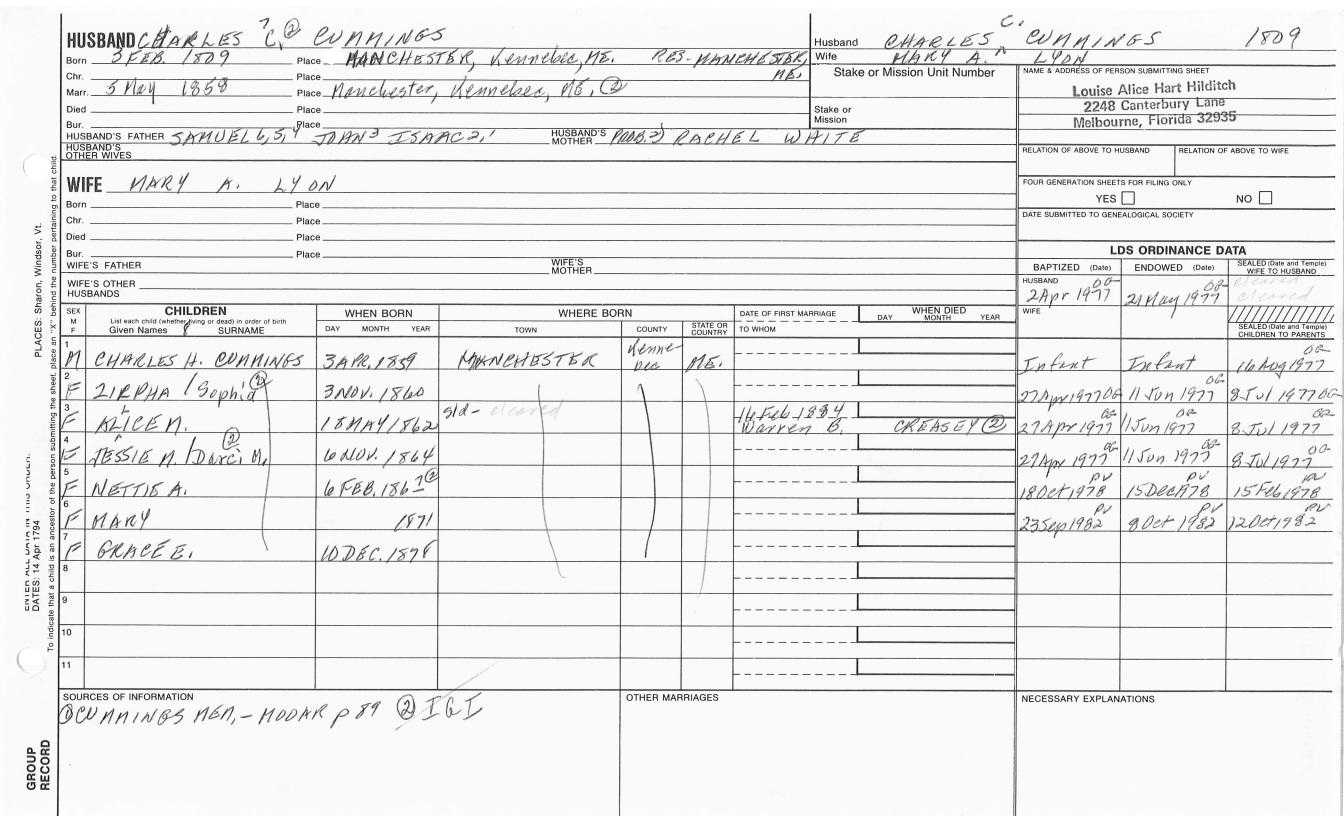 HUSBAND CHARLES ? C. ② CUMMINGS
Born 3 FEB. 1809 Place MANCHESTER, Kennebec, ME. RES. MANCHESTER, ME.
Chr. Place
Marr. 5 May 1858 Place Manchester, Kennebec, ME, ②
Died Place
Bur. Place
HUSBAND'S FATHER SAMUEL 6, 5, 4 JOHN 3 ISAAC 2, 1 HUSBAND'S MOTHER PROB. 2) RACHEL WHITE
HUSBAND'S OTHER WIVES
WIFE MARY A. LYON
Born Place
Chr. Place
Died Place
Bur. Place
WIFE'S FATHER WIFE'S MOTHER
WIFE'S OTHER HUSBANDS
Husband CHARLES C. CUMMINGS 1809
Wife MARY A. LYON
Stake or Mission Unit Number
Stake or Mission
NAME & ADDRESS OF PERSON SUBMITTING SHEET
Louise Alice Hart Hilditch
2248 Canterbury Lane
Melbourne, Florida 32935
RELATION OF ABOVE TO HUSBAND RELATION OF ABOVE TO WIFE
FOUR GENERATION SHEETS FOR FILING ONLY
YES NO
DATE SUBMITTED TO GENEALOGICAL SOCIETY
LDS ORDINANCE DATA
BAPTIZED (Date) ENDOWED (Date) SEALED (Date and Temple) WIFE TO HUSBAND
HUSBAND 2 Apr 1977 OG 21 May 1977 OG cleared
cleared
WIFE
SEALED (Date and Temple) CHILDREN TO PARENTS
SEX M F CHILDREN WHEN BORN WHERE BORN DATE OF FIRST MARRIAGE WHEN DIED
List each child (whether living or dead) in order of birth
Given Names SURNAME DAY MONTH YEAR TOWN COUNTY STATE OR COUNTRY TO WHOM DAY MONTH YEAR
1 M CHARLES H. CUMMINGS 3 APR. 1859 MANCHESTER Kennebec ME. Infant Infant 16 Aug 1977 OG
2 F ZIRPHA / Sophia ② 3 NOV. 1860 27 Apr 1977 OG 11 Jun 1977 OG 8 Jul 1977 OG
3 F ALICE M. 18 MAY 1862 sld - cleared 16 Feb 1884 Warren B. CREASEY ② 27 Apr 1977 OG 11 Jun 1977 OG 8 Jul 1977 OG
4 F JESSIE M. / Darci M. ② 6 NOV. 1864 27 Apr 1977 OG 11 Jun 1977 OG 8 Jul 1977 OG
5 F NETTIE A. 6 FEB. 1867 ② 18 Oct 1978 PV 15 Dec 1978 PV 15 Feb 1978 PV
6 F MARY 1871 23 Sep 1982 PV 8 Oct 1982 PV 12 Oct 1982 PV
7 F GRACE E. 10 DEC. 1878
8
9
10
11
SOURCES OF INFORMATION OTHER MARRIAGES NECESSARY EXPLANATIONS
① CUMMINGS MEM, - MODAR p 89 ② IGI
PLACES: Sharon, Windsor, Vt.
ENTER ALL DATA IN THIS ORDER:
DATES: 14 Apr 1794
To indicate that a child is an ancestor of the person submitting the sheet, place an "X" behind the number pertaining to that child.
GROUP RECORD